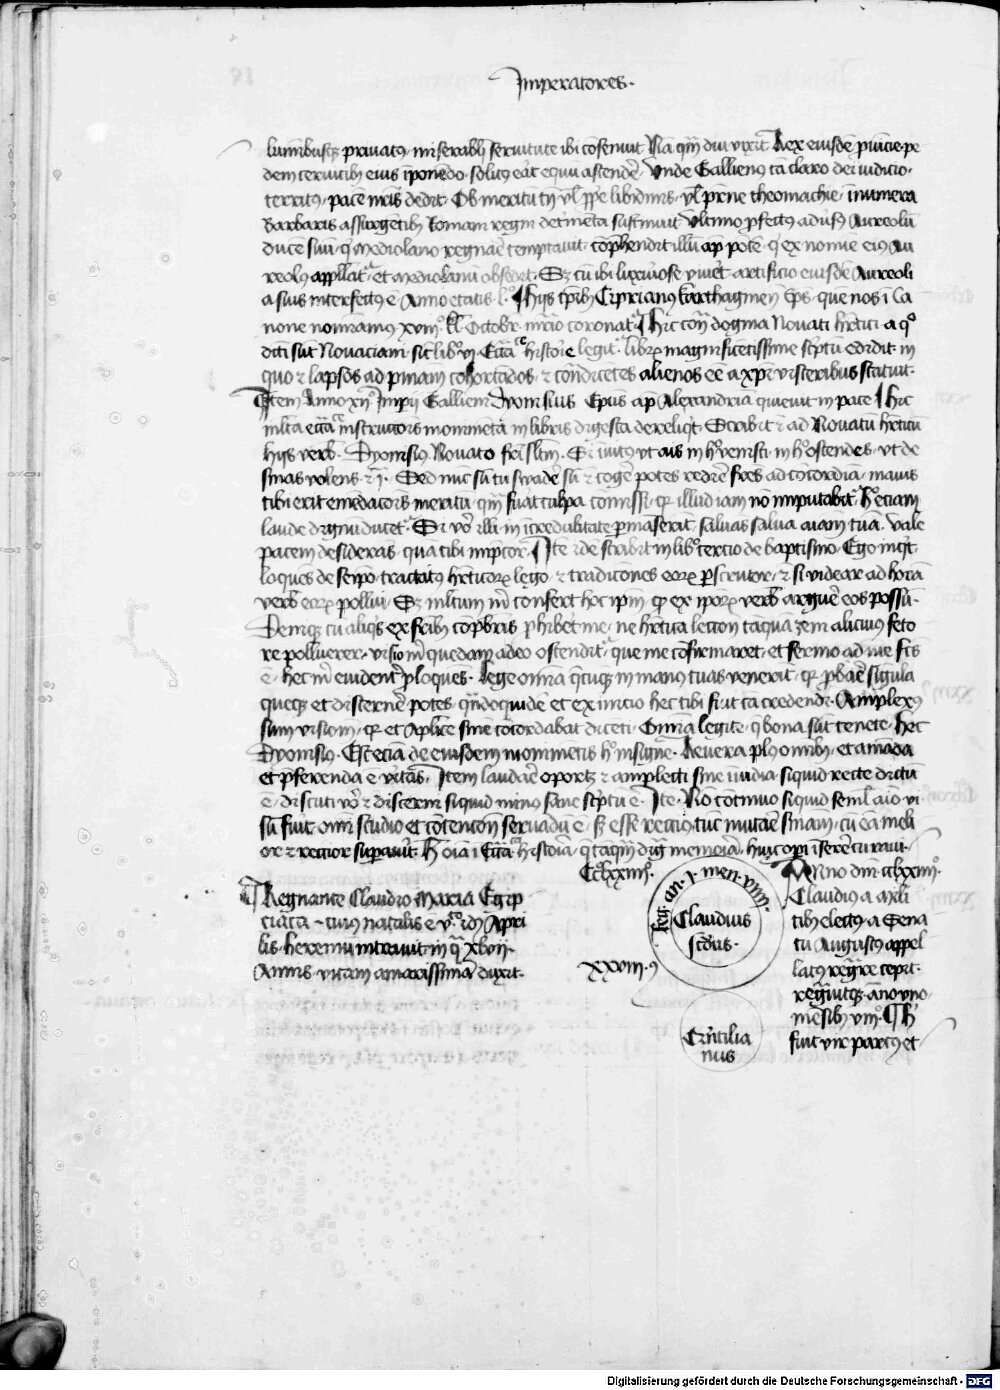 Imperatores.
priuatus miserabili seruitute ibi consenuit Nam diu vixit Rex eiusdem prouincie pe
dem ceruicibus eius imponendo solitus erat equum ascendere Vnde Gallienus tam claro dei iudicio
territus pacem nostris dedit Ob meritum
barbaris assurgentibus Romanum regnum detrimenta sustinuit Vltimo profectus aduersus Aureolum
ducem suum qui Mediolano regnare temptauit comprehendit illum apud pontem qui ex nomine eius Au
reolus appellatur et Mediolanum obsedit Sed cum ibi luxuriose viueret artificio eiusdem Aureoli
a suis interfectus est Anno etatis l Hijs temporibus Ciprianus Karthaginensis Episcopus quem nos in Ca
none nominamus xviii kl Octobr martirio coronatur Hic contra dogma Nouati heretici a quo
dicti sunt Nouaciani sicut libro vi Ecclesiastice historie legitur librum magnificentissime scriptum edidit in
quo et lapsos ad penitentiam cohortandos et contradicentes alienos esse a xpi visceribus statuit
Item Anno xii Imperii Gallieni Dyonisius Episcopus apud Alexandriam quieuit in pace Hic
multa instructionis monimenta in libris digesta dereliquit Scribit et ad Nouatum hereticum
hijs verbis Dyonisius Nouato fratri salutem Si inuitus vt ais in hoc venisti in hoc ostendes vt de
sinas volens Sed nunc si tu suadere et cogere potes redire fratres ad concordiam maius
tibi erit emendacionis meritum quam fuerat culpa commissi quia illud iam non imputabitur hoc etiam
laude dignum ducetur Si vero illi in incredulitate permanserint saluans salua animam tuam Vale
pacem desiderans quam tibi imprecor Item idem scribit in libro tercio de baptismo Ego inquit
loquens de seipso tractatus hereticorum lego et tradiciones eorum perscrutor et si videar ad horam
verbis eorum pollui Sed multum michi confert hoc ipsum quia ex ipsorum verbis arguere eos possum
Denique cum aliquis ex fratribus compresbiteris prohiberet me ne heretica lectione tamquam alicuius feto
re polluerer visio michi quedam a deo ostenditur que me confirmaret et sermo ad me factus
est hec michi euidenter proloquens Lege omnia quecumque in manus tuas venerint quia probare singula
queque et discernere potes quandoquidem et ex inicio hec tibi fuit causa credendi Amplexus
sum visionem quia et Apostolice sentencie concordabat dicenti Omnia legite que bona sunt tenete Hec
Dyonisius Est etiam de eiusdem monimentis hoc insigne Reuera plus omnibus et amanda
et preferenda est veritas Item laudare oportet et amplecti sine inuidia siquid recte dictum
est discuti vero et discerni siquid minus sane scriptum est Item Non continuo siquid semel animo vi
sum fuit omni studio et contencione seruandum est sed esse rectius tunc mutare sentenciam cum eam meli
or et rectior superauerit Hec omnia in Ecclesiastica historia que tamquam digna memoria huic operi inserere curaui
Regnante Claudio Maria Egip
ciaca cuius natalis est v idus Apri
lis heremum intrauit in qua xlvii
Annis vitam amarissimam duxit
CClxxiiii
xxviii
reg. an. i men. viiii
Claudius
secundus
Quintilia
nus
Anno domini cclxxiiii
Claudius a militi
bus electus a Sena
tu Augustus appel
latus regnare cepit
regnauitque anno vno
mensibus viiii Hic
fuit vir parcus et
Digitalisierung gefördert durch die Deutsche Forschungsgemeinschaft - DFG